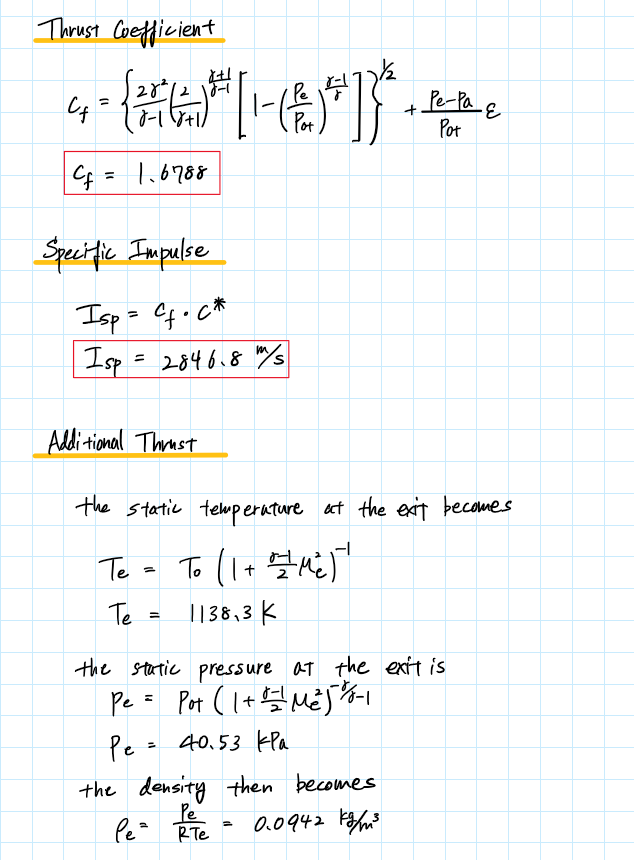 Thrust Coefficient
C_f = { 2γ²/(γ-1) (2/(γ+1))^((γ+1)/(γ-1)) [ 1 - (Pe/Pot)^((γ-1)/γ) ] }^(1/2) + (Pe-Pa)/Pot ε
C_f = 1.6788
Specific Impulse
Isp = C_f · C*
Isp = 2846.8 m/s
Additional Thrust
the static temperature at the exit becomes
Te = To (1 + (γ-1)/2 Me²)^-1
Te = 1138.3 K
the static pressure at the exit is
Pe = Pot (1 + (γ-1)/2 Me²)^(-γ/γ-1)
Pe = 40.53 kPa
the density then becomes
ρe = Pe/RTe = 0.0942 kg/m³